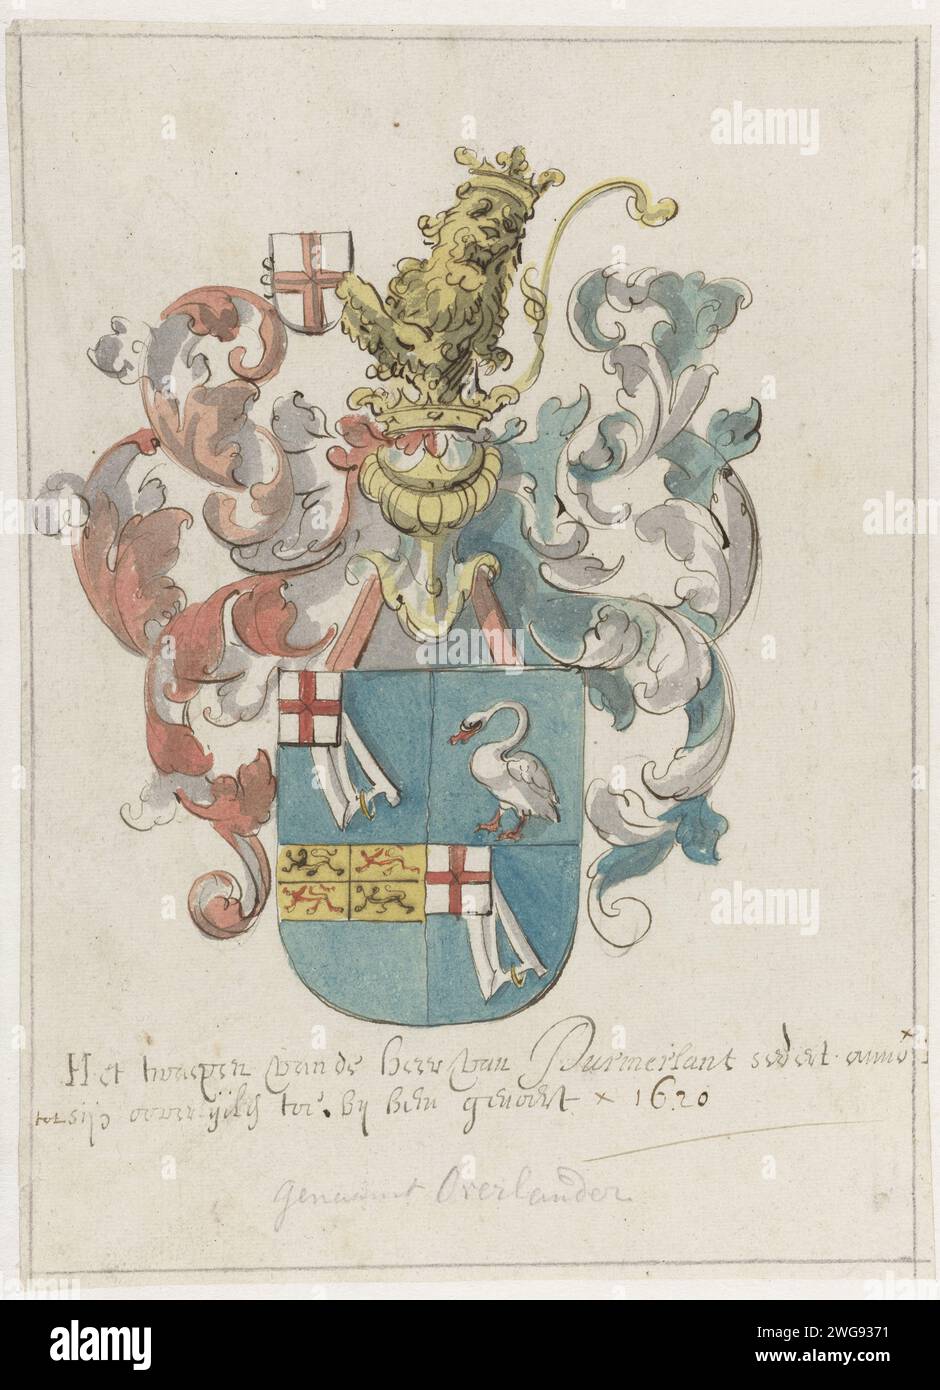 Het wapen van de heer van Purmerlant sedert anno
tot sijn overlijden toe. bij hem gevoert × 1620
genaamt Overlander
alamy
alamy
alamy
alamy
alamy
alamy
Image ID: 2WG9371
www.alamy.com